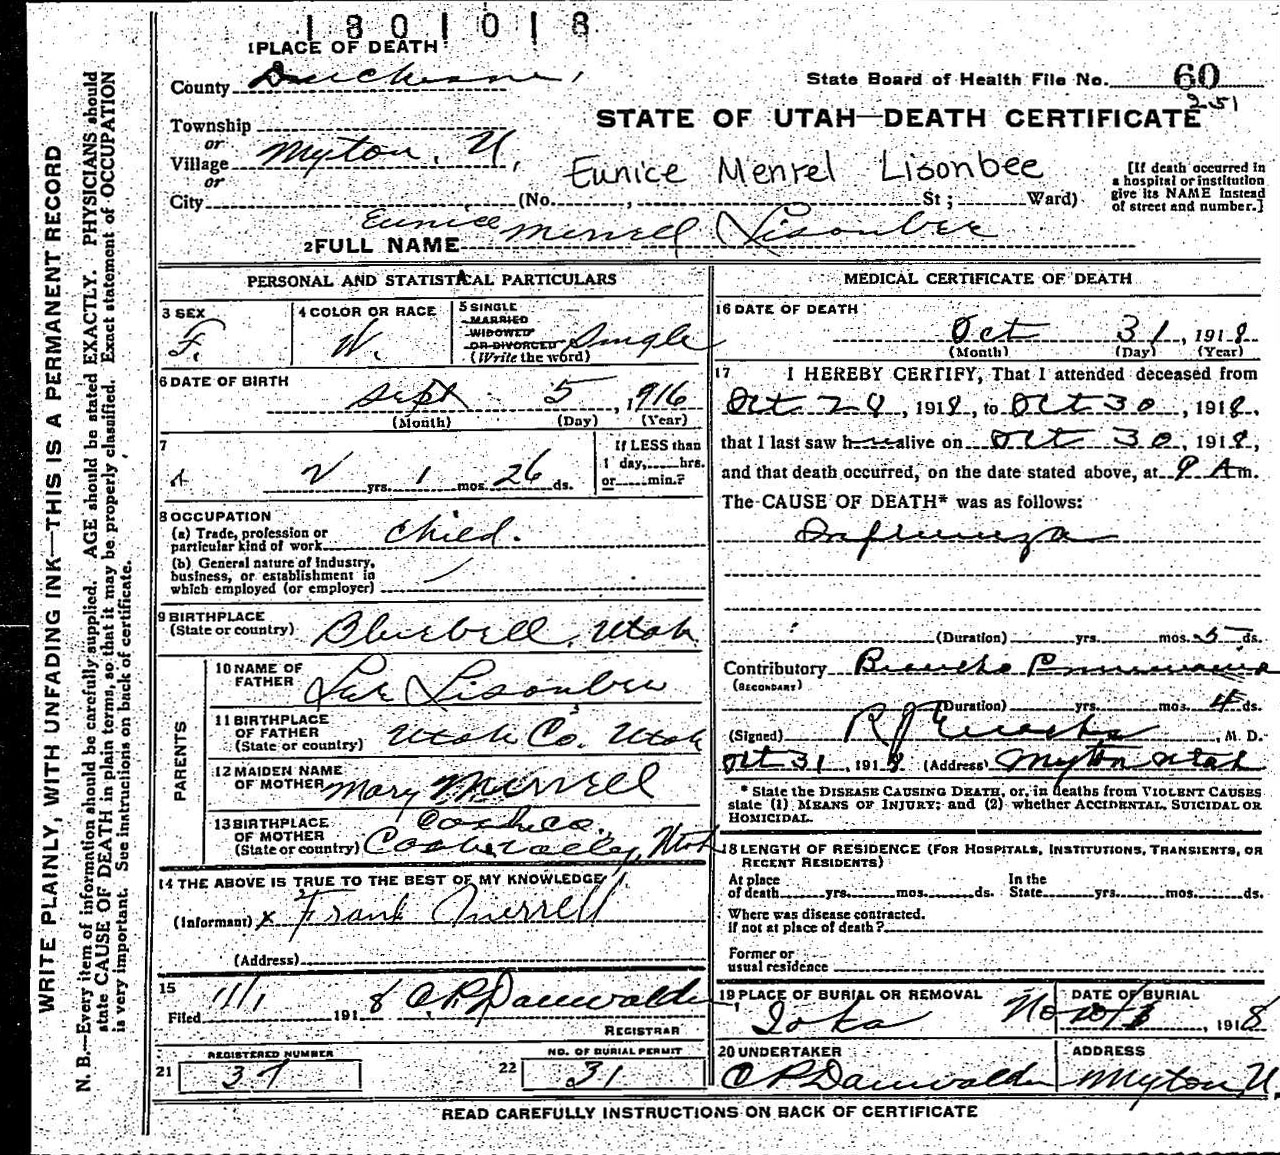 1801018
1 PLACE OF DEATH
County Duchesne,
State Board of Health File No. 60
251
STATE OF UTAH—DEATH CERTIFICATE
Township
or
Village Myton, U,
or
Eunice Menrel Lisonbee
[If death occurred in a hospital or institution give its NAME instead of street and number.]
City (No. , St ; Ward)
2 FULL NAME Eunice Merrell Lisonbee
PERSONAL AND STATISTICAL PARTICULARS
3 SEX
F.
4 COLOR OR RACE
W.
5 SINGLE
MARRIED
WIDOWED
OR DIVORCED Single
(Write the word)
6 DATE OF BIRTH
Sept 5, 1916
(Month) (Day) (Year)
7
2 yrs. 1 mos. 26 ds.
If LESS than
1 day, hrs.
or min.?
8 OCCUPATION
(a) Trade, profession or
particular kind of work child.
(b) General nature of industry,
business, or establishment in
which employed (or employer)
9 BIRTHPLACE
(State or country) Bluebell, Utah
PARENTS
10 NAME OF
FATHER Lisonbee
11 BIRTHPLACE
OF FATHER
(State or country) Utah Co. Utah
12 MAIDEN NAME
OF MOTHER Mary Merrell
13 BIRTHPLACE
OF MOTHER
(State or country) Utah
14 THE ABOVE IS TRUE TO THE BEST OF MY KNOWLEDGE
(Informant) x Frank Merrell
(Address)
15
Filed 11/1 1918 C.R. Dannwalder
REGISTRAR
21 REGISTERED NUMBER
37
22 NO. OF BURIAL PERMIT
31
MEDICAL CERTIFICATE OF DEATH
16 DATE OF DEATH
Oct 31, 1918
(Month) (Day) (Year)
17 I HEREBY CERTIFY, That I attended deceased from
Oct 28, 1918, to Oct 30, 1918,
that I last saw h alive on Oct 30, 1918,
and that death occurred, on the date stated above, at 9 A m.
The CAUSE OF DEATH* was as follows:
Influenza
(Duration) yrs. mos. 5 ds.
Contributory Broncho Pneumonia
(SECONDARY)
(Duration) yrs. mos. 4 ds.
(Signed) R J Enochs, M. D.
Oct 31, 1918 (Address) Myton Utah
* State the DISEASE CAUSING DEATH, or, in deaths from VIOLENT CAUSES
state (1) MEANS OF INJURY; and (2) whether ACCIDENTAL, SUICIDAL OR
HOMICIDAL.
18 LENGTH OF RESIDENCE (FOR HOSPITALS, INSTITUTIONS, TRANSIENTS, OR
RECENT RESIDENTS)
At place of death yrs. mos. ds. In the State yrs. mos. ds.
Where was disease contracted.
if not at place of death?
Former or
usual residence
19 PLACE OF BURIAL OR REMOVAL
Ioka
DATE OF BURIAL
Nov, 1918
20 UNDERTAKER
C R Dannwalder
ADDRESS
Myton U,
READ CAREFULLY INSTRUCTIONS ON BACK OF CERTIFICATE
WRITE PLAINLY, WITH UNFADING INK—THIS IS A PERMANENT RECORD
N. B.—Every item of information should be carefully supplied. AGE should be stated EXACTLY. PHYSICIANS should
state CAUSE OF DEATH in plain terms, so that it may be properly classified. Exact statement of OCCUPATION
is very important. See instructions on back of certificate.